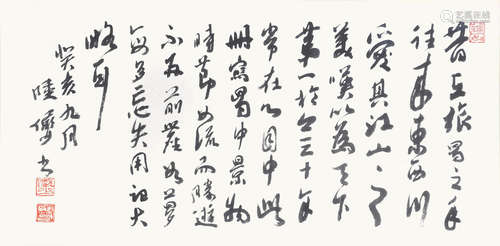 昔在旅蜀之年
往來東西川
愛其江山之
美嘆以為天下
第一於今三十年
常在心目中此
冊寫蜀中景物
時節如流而勝遊
不返前塵如夢
每多忘失用記大
略耳
癸亥九月
陸儼少